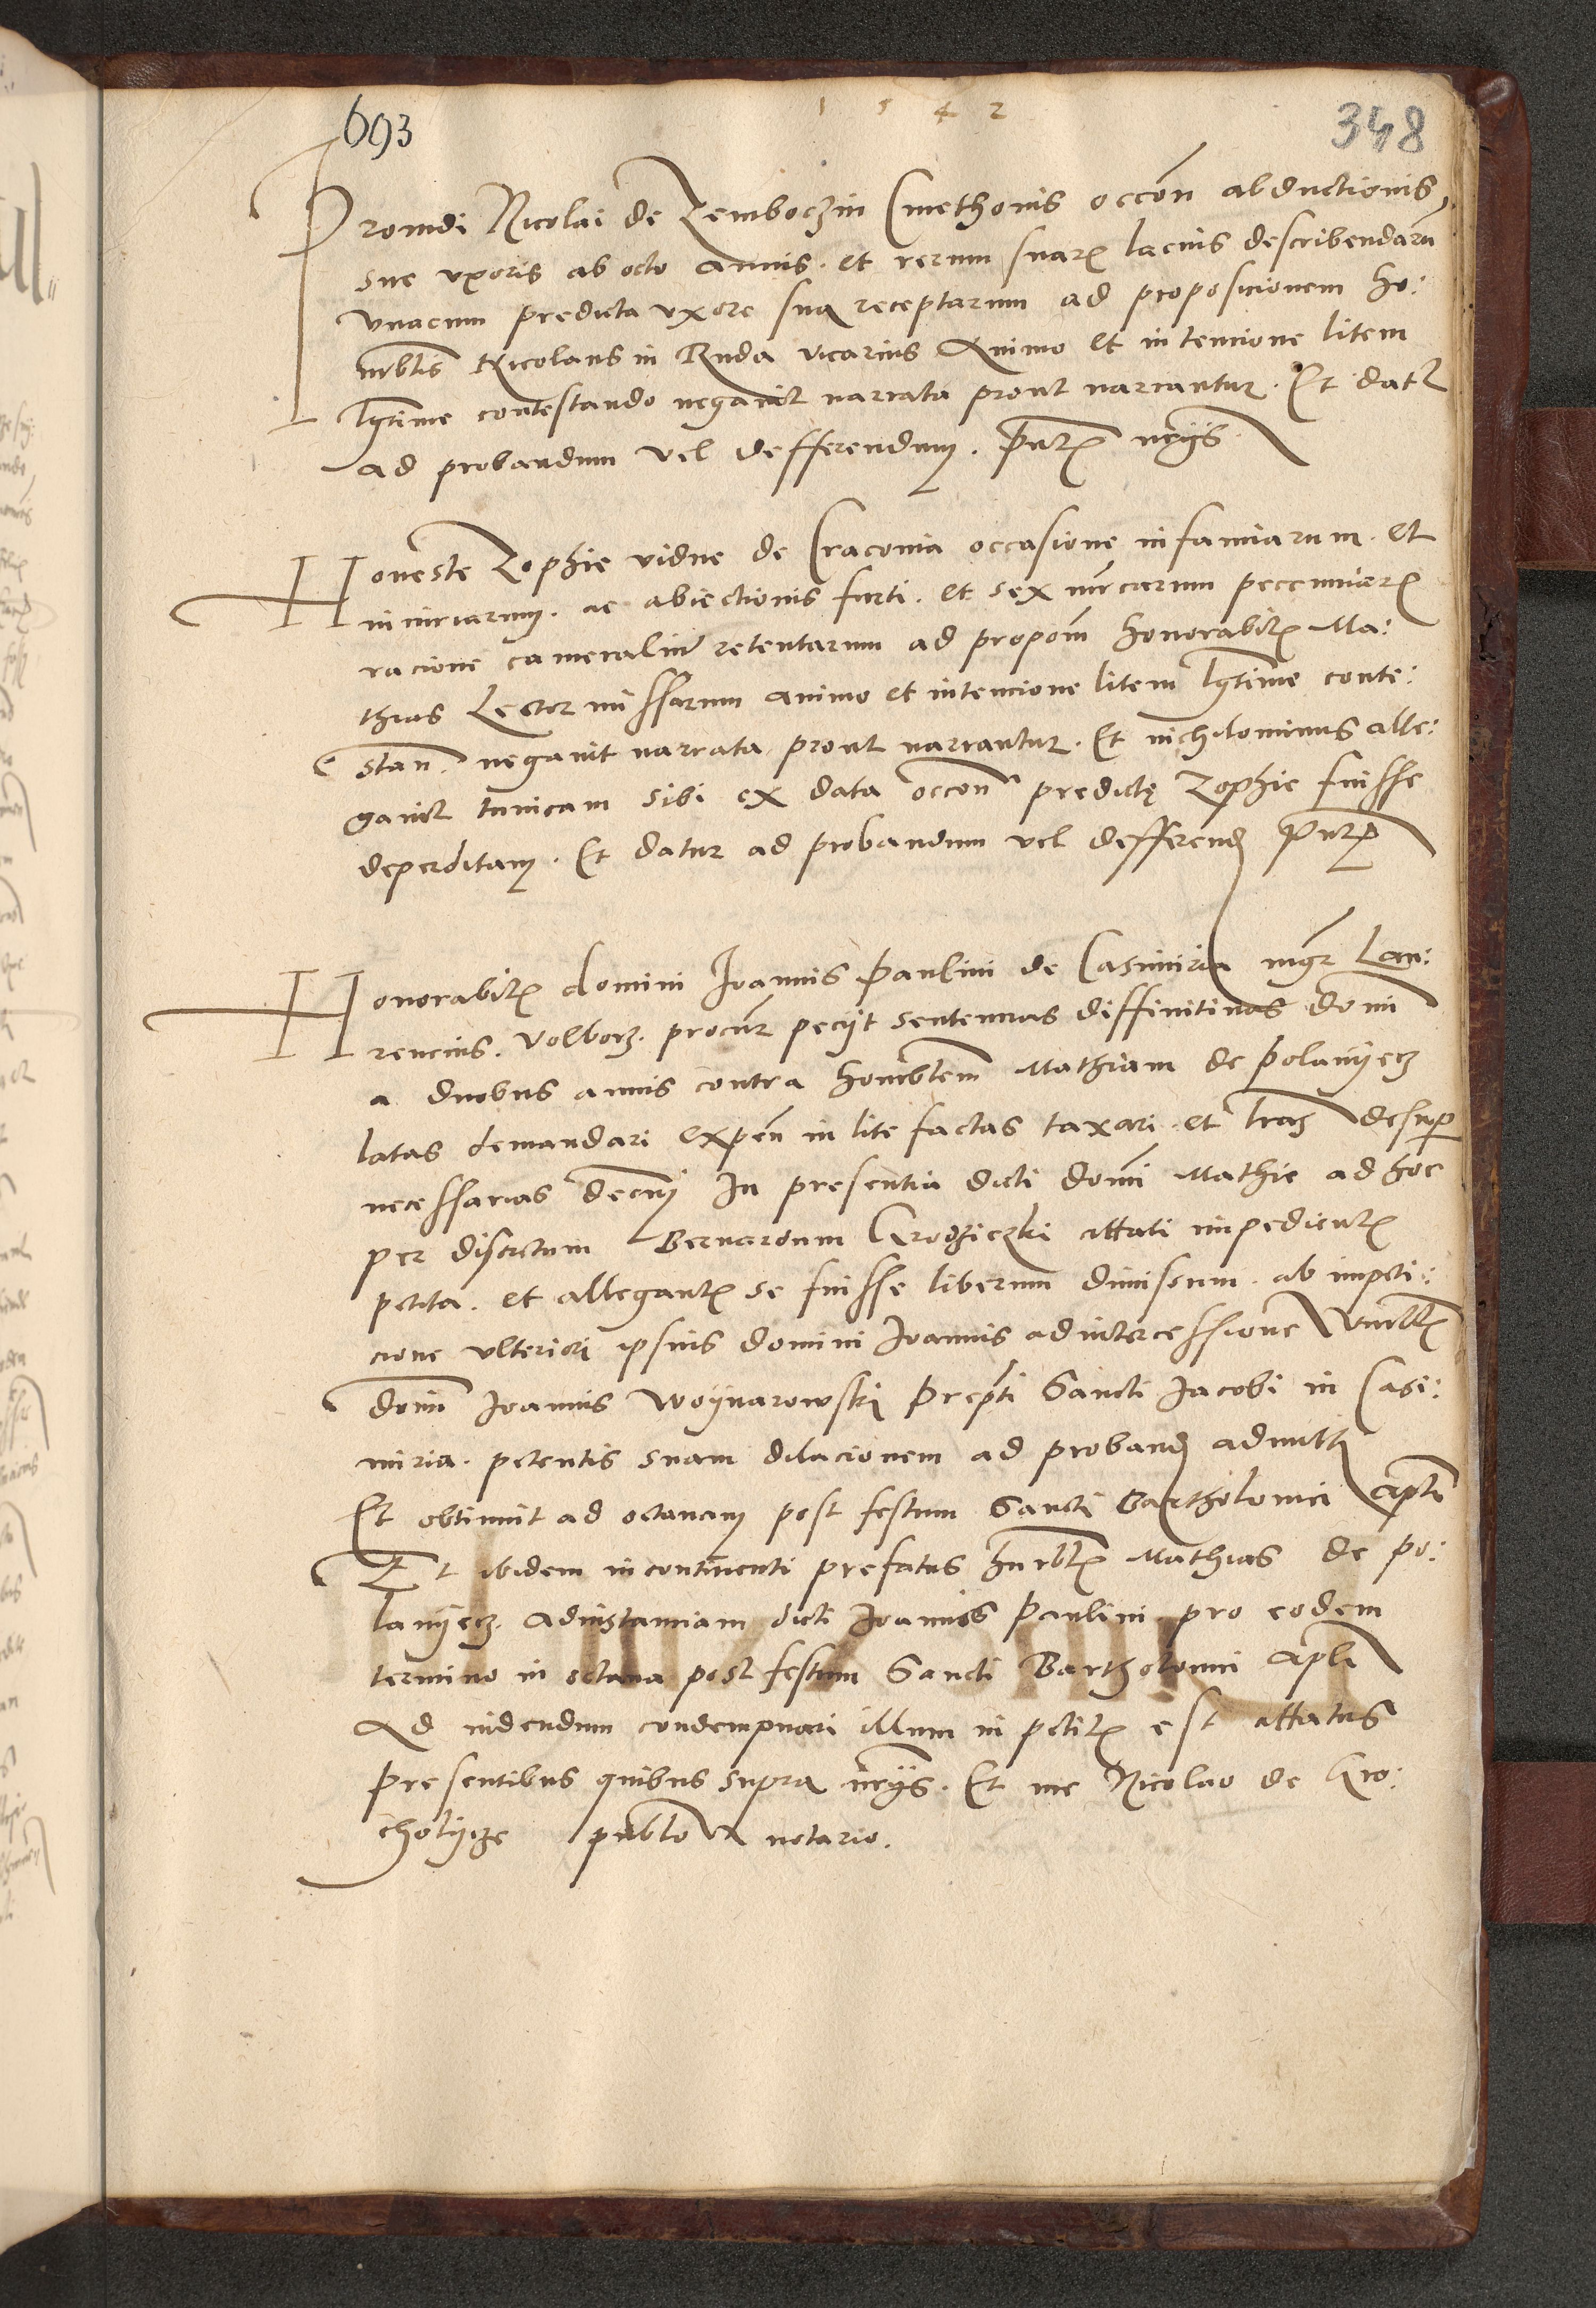 1 5 4 2
693
348
Promdi Nicolai de Zemboczin Cmethonis occōn abductionis
sue vxoris ab octo annis. et rerum suarꝝ lacius describendarū
vnacum predicta vxore sua receptarum ad proposicionem ho:
nrblis Nicolaus in Ruda vicarius Animo et intencione litem
lgtime contestando negauit narrata prout narrantur. Et datr
ad probandum vel defferendum. pntꝝ nrijs
Honeste Zophie vidue de Cracouia occasione infamiarum. et
iniuriarum. ac abiectionis furti. et sex mrcarum peccuniarꝝ
racione cameraliu retentarum ad propom honorabilꝝ Ma:
thias Lector missarum animo et intencione litem lgtime conte:
stan. negauit narrata prout narrantur. Et nichilominus alle:
gauit tunicam sibi ex data occon predictę Zophie fuisse
deperditam. Et datur ad probandum vel defferend pntꝝ
Honorabilꝝ domini Ioannis Paulini de Casimiria mgr Lau:
rencius. Volborz. procur pecijt sentencias diffinitiuas domi
a duobus annis contra honrblem Mathiam de polanyecz
latas demandari expen in lite factas taxari et lras desuper
necessarias decerni In presentia dicti domi Mathie ad hoc
per discretum Bernardum Grodziczki attati impedientꝝ
petita. et allegantꝝ se fuisse liberum dimissum. ab impeti:
cione vlteriori ipsius domini Ioannis ad intercessione Vnrblꝝ
domi Ioannis Woynarowski Prepti Sancti Iacobi in Casi:
miria. petentis suam dilacionem ad proband admitti
Et obtinuit ad octauam post festum Sancti Bartholomei Apli
Et ibidem incontinenti prefatus hnrblꝝ Mathias de po:
lanyecz. ad instanciam dicti Ioannis Paulini pro eodem
termino in octaua post festum Sancti Bartholomei Apli
Ad videndum condempnari illum in petitꝝ est attatus
presentibus quibus supra nrijs. Et me Nicolao de Gro:
cholycze publo notario.